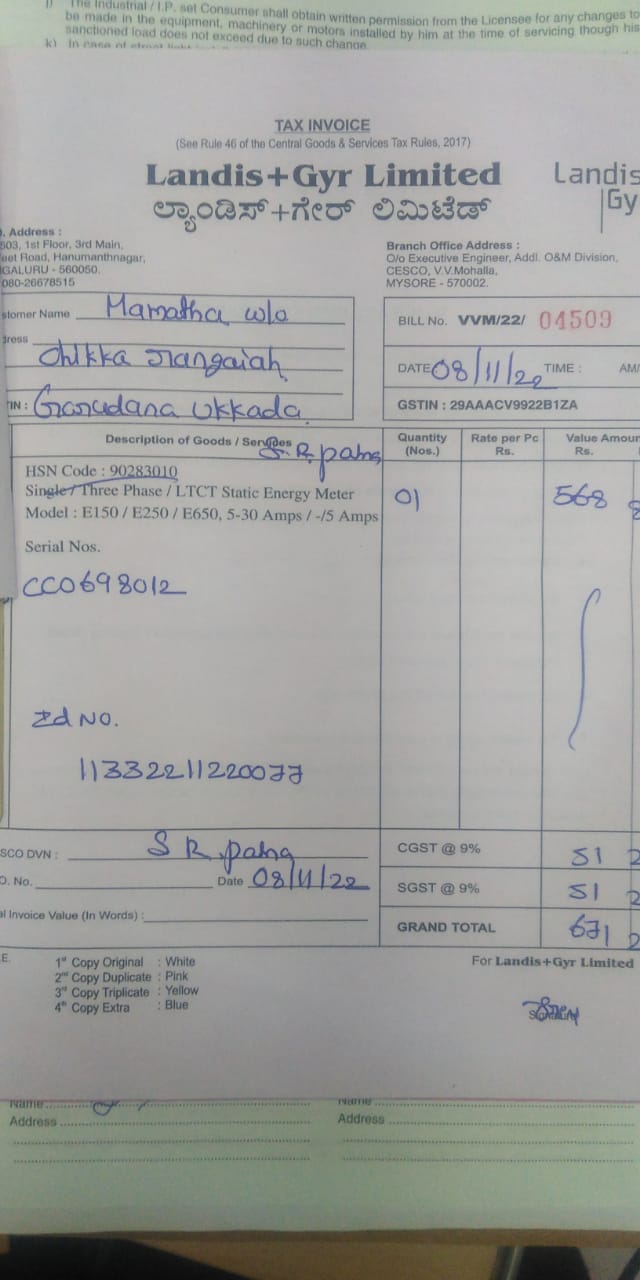 j) The Industrial / I.P. set Consumer shall obtain written permission from the Licensee for any changes to
be made in the equipment, machinery or motors installed by him at the time of servicing though his
sanctioned load does not exceed due to such change.
k) In case of street light
TAX INVOICE
(See Rule 46 of the Central Goods & Services Tax Rules, 2017)
Landis+Gyr Limited
Landis
Gy
ಲ್ಯಾಂಡಿಸ್+ಗೇರ್ ಲಿಮಿಟೆಡ್
. Address :
503, 1st Floor, 3rd Main,
eet Road, Hanumanthnagar,
GALURU - 560050.
080-26678515
Branch Office Address :
O/o Executive Engineer, Addl. O&M Division,
CESCO, V.V.Mohalla,
MYSORE - 570002.
stomer Name Mamatha w/o
dress Chikka
IN : Ukkada
S.R. patna
BILL No. VVM/22/ 04509
DATE 08/11/22 TIME : AM/
GSTIN : 29AAACV9922B1ZA
Description of Goods / Services Quantity (Nos.) Rate per Pc Rs. Value Amoun Rs.
HSN Code : 90283010
Single / Three Phase / LTCT Static Energy Meter 01 568 8
Model : E150 / E250 / E650, 5-30 Amps / -/5 Amps
Serial Nos.
CC0698012
Id No.
11332211220077
SCO DVN : S R patna
O. No. Date 08/11/22
al Invoice Value (In Words) :
CGST @ 9% 51 2
SGST @ 9% 51 2
GRAND TOTAL 671 2
E. 1st Copy Original : White
2nd Copy Duplicate : Pink
3rd Copy Triplicate : Yellow
4th Copy Extra : Blue
For Landis+Gyr Limited
Name Name
Address Address